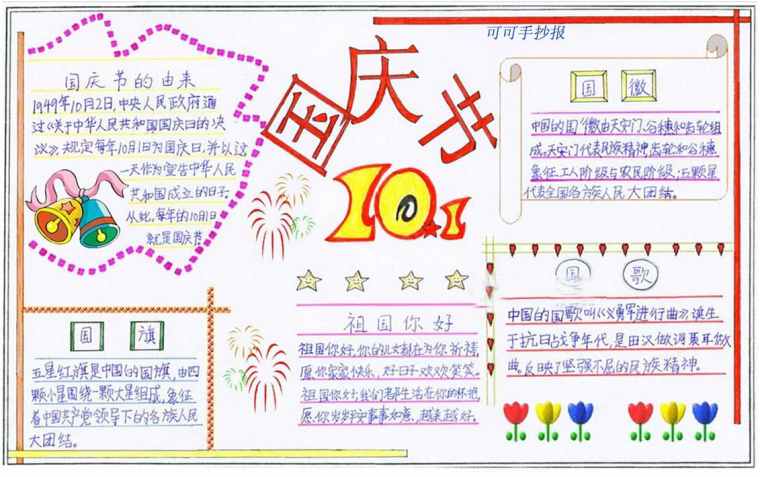 可可手抄报
国庆节
10.1
国庆节的由来
1949年10月2日,中央人民政府通
过《关于中华人民共和国国庆日的决
议》,规定每年10月1日为国庆日,并以这
一天作为宣告中华人民
共和国成立的日子.
从此,每年的10月1日
就是国庆节
国徽
中国的国徽由天安门、谷穗和齿轮组
成,天安门代表民族精神,齿轮和谷穗
象征工人阶级与农民阶级,五颗星
代表全国各族人民大团结。
国旗
五星红旗是中国的国旗,由四
颗小星围绕一颗大星组成,象征
着中国共产党领导下的各族人民
大团结。
祖国你好
祖国你好,你的儿女都在为你祈祷,
愿你蜜蜜快乐,好日子欢欢笑笑。
祖国你好,我们都生活在你的怀抱
愿你岁岁平安事事如意,越来越好。
国歌
中国的国歌叫《义勇军进行曲》诞生
于抗日战争年代,是由汉做词聂耳做
曲。反映了坚强不屈的民族精神。